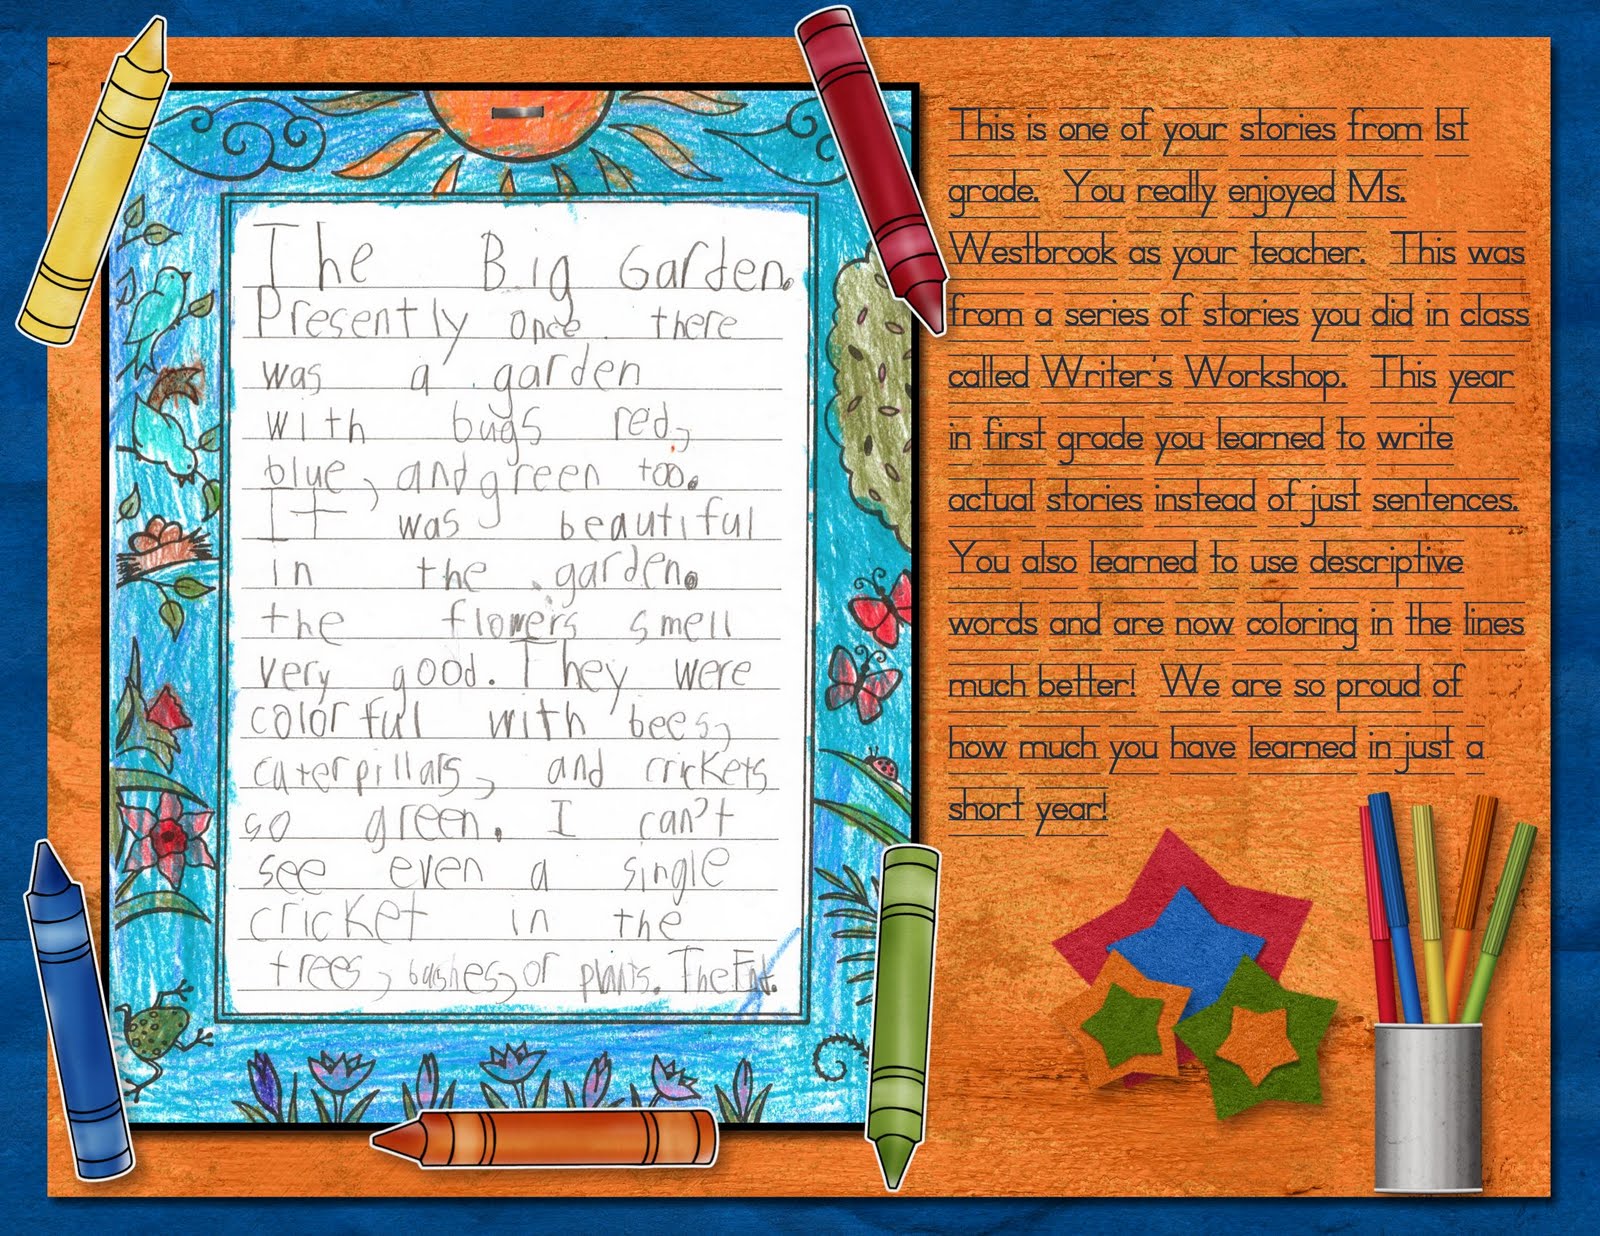 The Big Garden.
Presently once there
was a garden
with bugs red,
blue, and green too.
It was beautiful
in the garden.
the flowers smell
very good. They were
colorful with bees,
caterpillars, and crickets
so green. I can't
see even a single
cricket in the
trees, bushes, or plants. The End.
This is one of your stories from 1st
grade. You really enjoyed Ms.
Westbrook as your teacher. This was
from a series of stories you did in class
called Writer's Workshop. This year
in first grade you learned to write
actual stories instead of just sentences.
You also learned to use descriptive
words and are now coloring in the lines
much better! We are so proud of
how much you have learned in just a
short year!